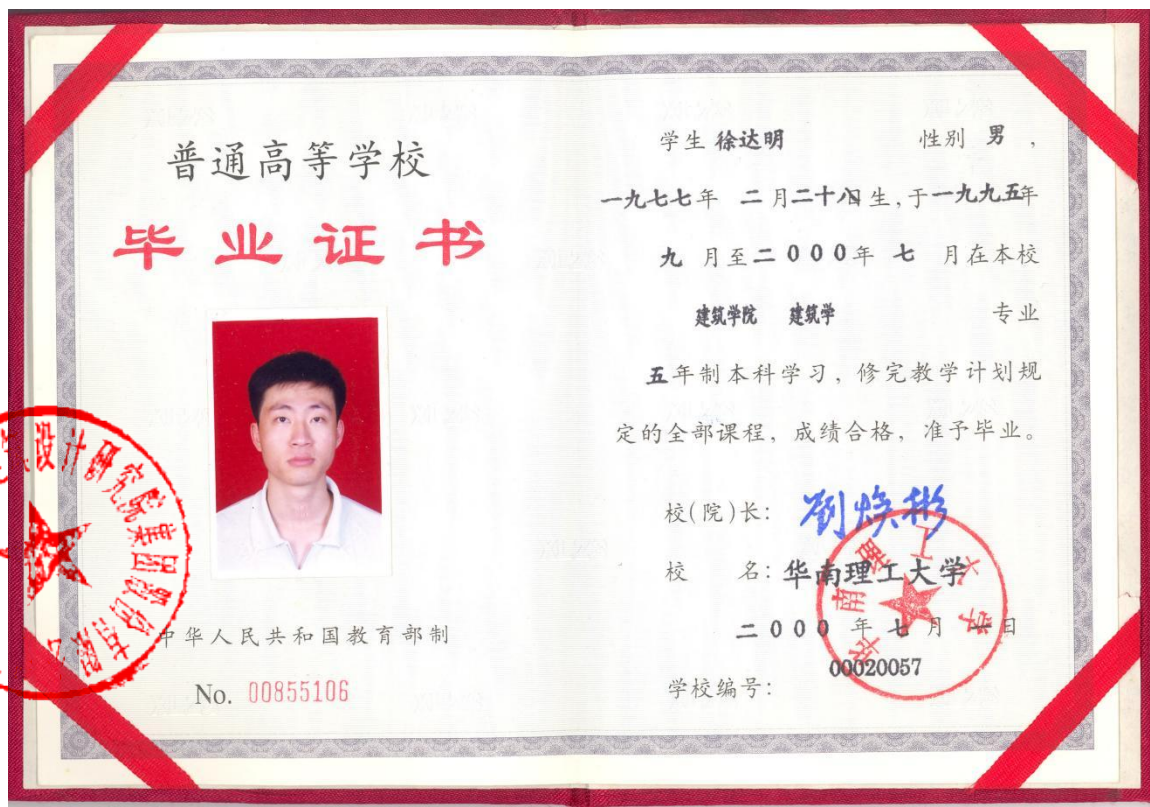 普通高等学校
毕业证书
中华人民共和国教育部制
No. 00855106
学生 徐达明 性别 男,
一九七七年 二月二十八日生,于一九九五年
九 月至二000年 七 月在本校
建筑学院 建筑学 专业
五年制本科学习,修完教学计划规
定的全部课程,成绩合格,准予毕业。
校(院)长: 劉焕彬
校 名: 华南理工大学
二000年七月一日
学校编号: 00020057
华南理工大学
设计研究院集团股份有限公